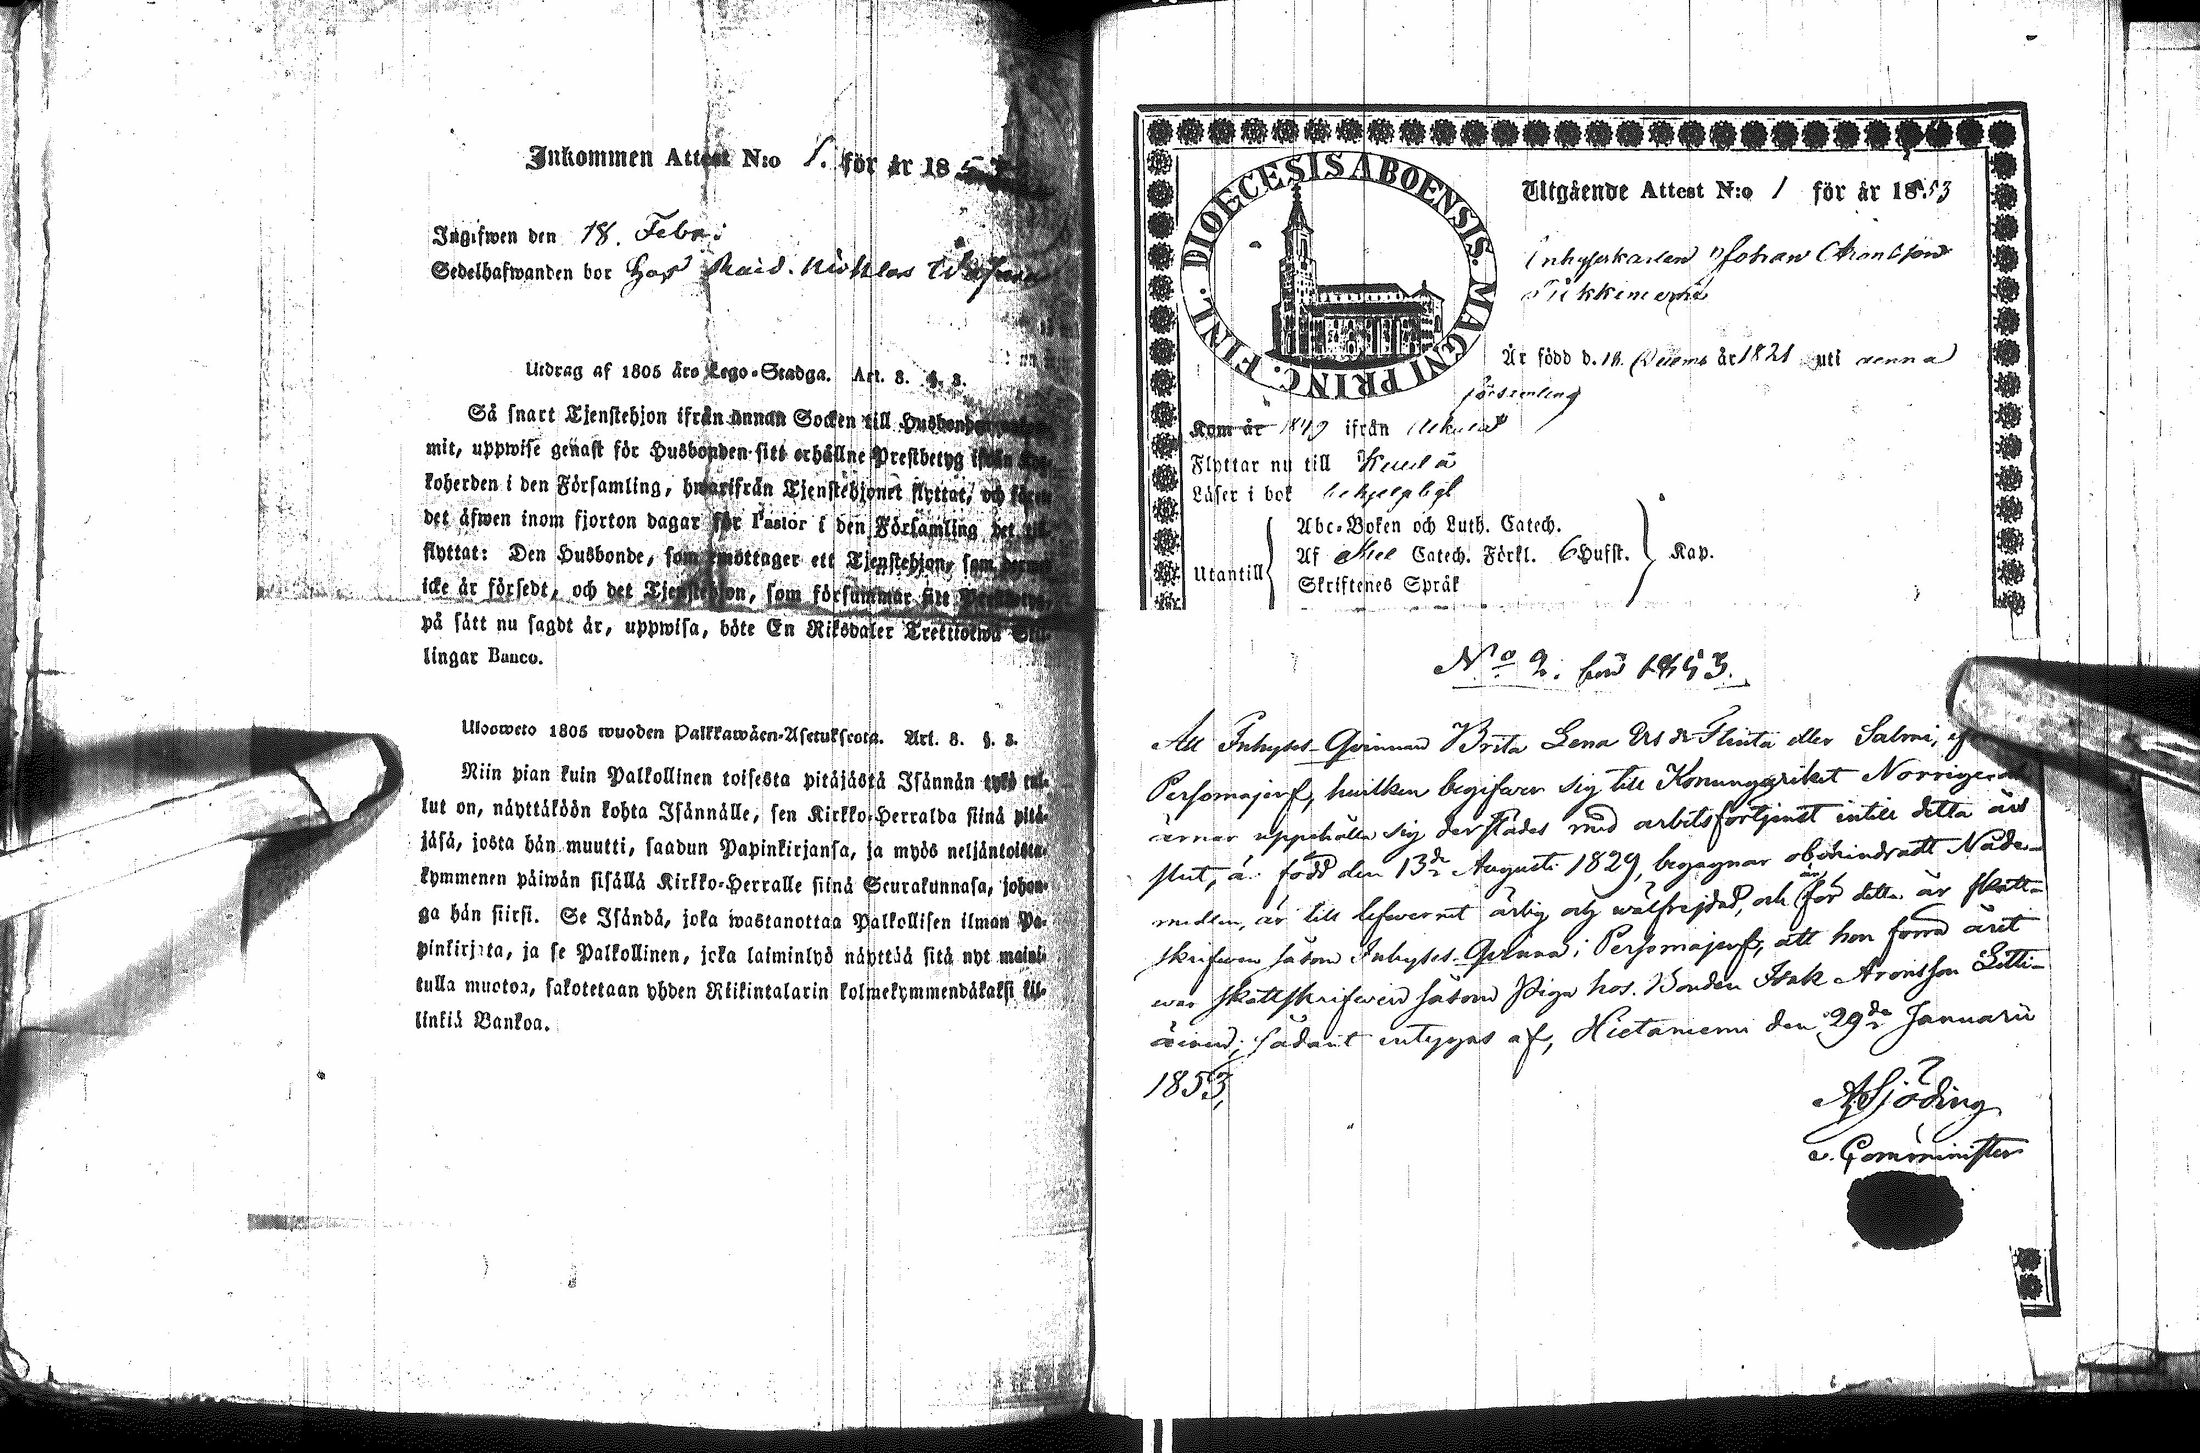 Inkommen Attest N:o 1. för år 185
Ingifwen den 18. Febr:
Sedelhafwanden bor hos
Utdrag af 1805 års Lego-Stadga. Art. 8. §. 3.
Så snart Tjenstehjon ifrån annan Socken till Husbonden
mit, uppwise genast för Husbonden sitt erhållne Prestbetyg ifrån
koherden i den Församling, hwarifrån Tjenstehjonet flyttat, och
det äfwen inom fjorton dagar för Pastor i den Församling det
flyttat: Den Husbonde, som emottager ett Tjenstehjon, som
icke är försedt, och det Tjenstehjon, som försummar sitt
på sätt nu sagdt är, uppwisa, böte En Riksdaler Trettiotwå Skil-
lingar Banco.
Ulosweto 1805 wuoden Palkkawäen-Asetuksesta. Art. 8. §. 3.
Niin pian kuin Palkollinen toisesta pitäjästä Isännän tykö tul-
lut on, näyttäköön kohta Isännälle, sen Kirkko-Herralda siinä pitä-
jäsä, josta hän muutti, saadun Papinkirjansa, ja myös neljäntoista-
kymmenen päiwän sisällä Kirkko-Herralle siinä Seurakunnasa, johon-
ga hän siirsi. Se Isändä, joka wastanottaa Palkollisen ilman Pa-
pinkirjata, ja se Palkollinen, joka laiminlyö näyttää sitä nyt maini-
tulla muotoa, sakotetaan yhden Riikintalarin kolmekymmendäkaksi kil-
linkiä Bankoa.
DIOECESIS ABOENSIS. MAGNI PRINC. FINL.
Utgående Attest N:o 1 för år 1853
Inhyseskarlen Johan Aronsson
Är född d. 18. år 1821 uti denna
församling
Kom år 1849 ifrån
Flyttar nu till
Läser i bok
Abc-Boken och Luth. Catech.
Utantill Af Catech. Förkl. 6 Hufst. Kap.
Skriftenes Språk
No 2. för 1853.
Att Inhyses-Qvinnan Brita Lena Flinta eller Salmi,
Persomajerf, hvilken begifver sig till Konungariket Norrige
ärnar uppehålla sig derstädes med arbetsförtjenst intill detta års
slut, är född den 13de Augusti 1829, begagnar obehindradt Nåde-
medlen, är till lefvernet ärlig och wälfrejdad, och för detta år skatt-
skrifven såsom Inhyses-Qvinna i Persomajerf, att hon förra året
war skattskrifven såsom Piga hos Bonden Isak Aronsson
sådant intygas af, Hietaniemi den 29de Januarii
1853,
A Sjöding
v. Comminister